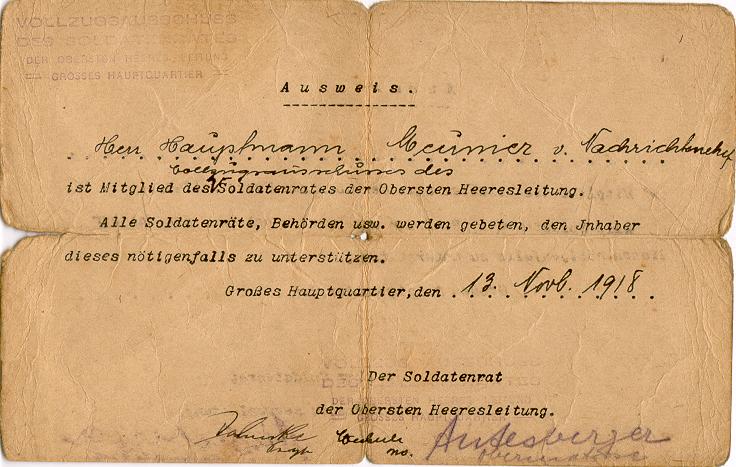 VOLLZUGSAUSSCHUSS
DES SOLDATENRATES
DER OBERSTEN HEERESLEITUNG
GROSSES HAUPTQUARTIER
Ausweis.
Herr Hauptmann Meunier v. Nachrichtenchef
Vollzugsausschusses des
ist Mitglied des Soldatenrates der Obersten Heeresleitung.
Alle Soldatenräte, Behörden usw. werden gebeten, den Jnhaber
dieses nötigenfalls zu unterstützen.
Großes Hauptquartier, den 13. Novb. 1918
Der Soldatenrat
der Obersten Heeresleitung.
Antesberger